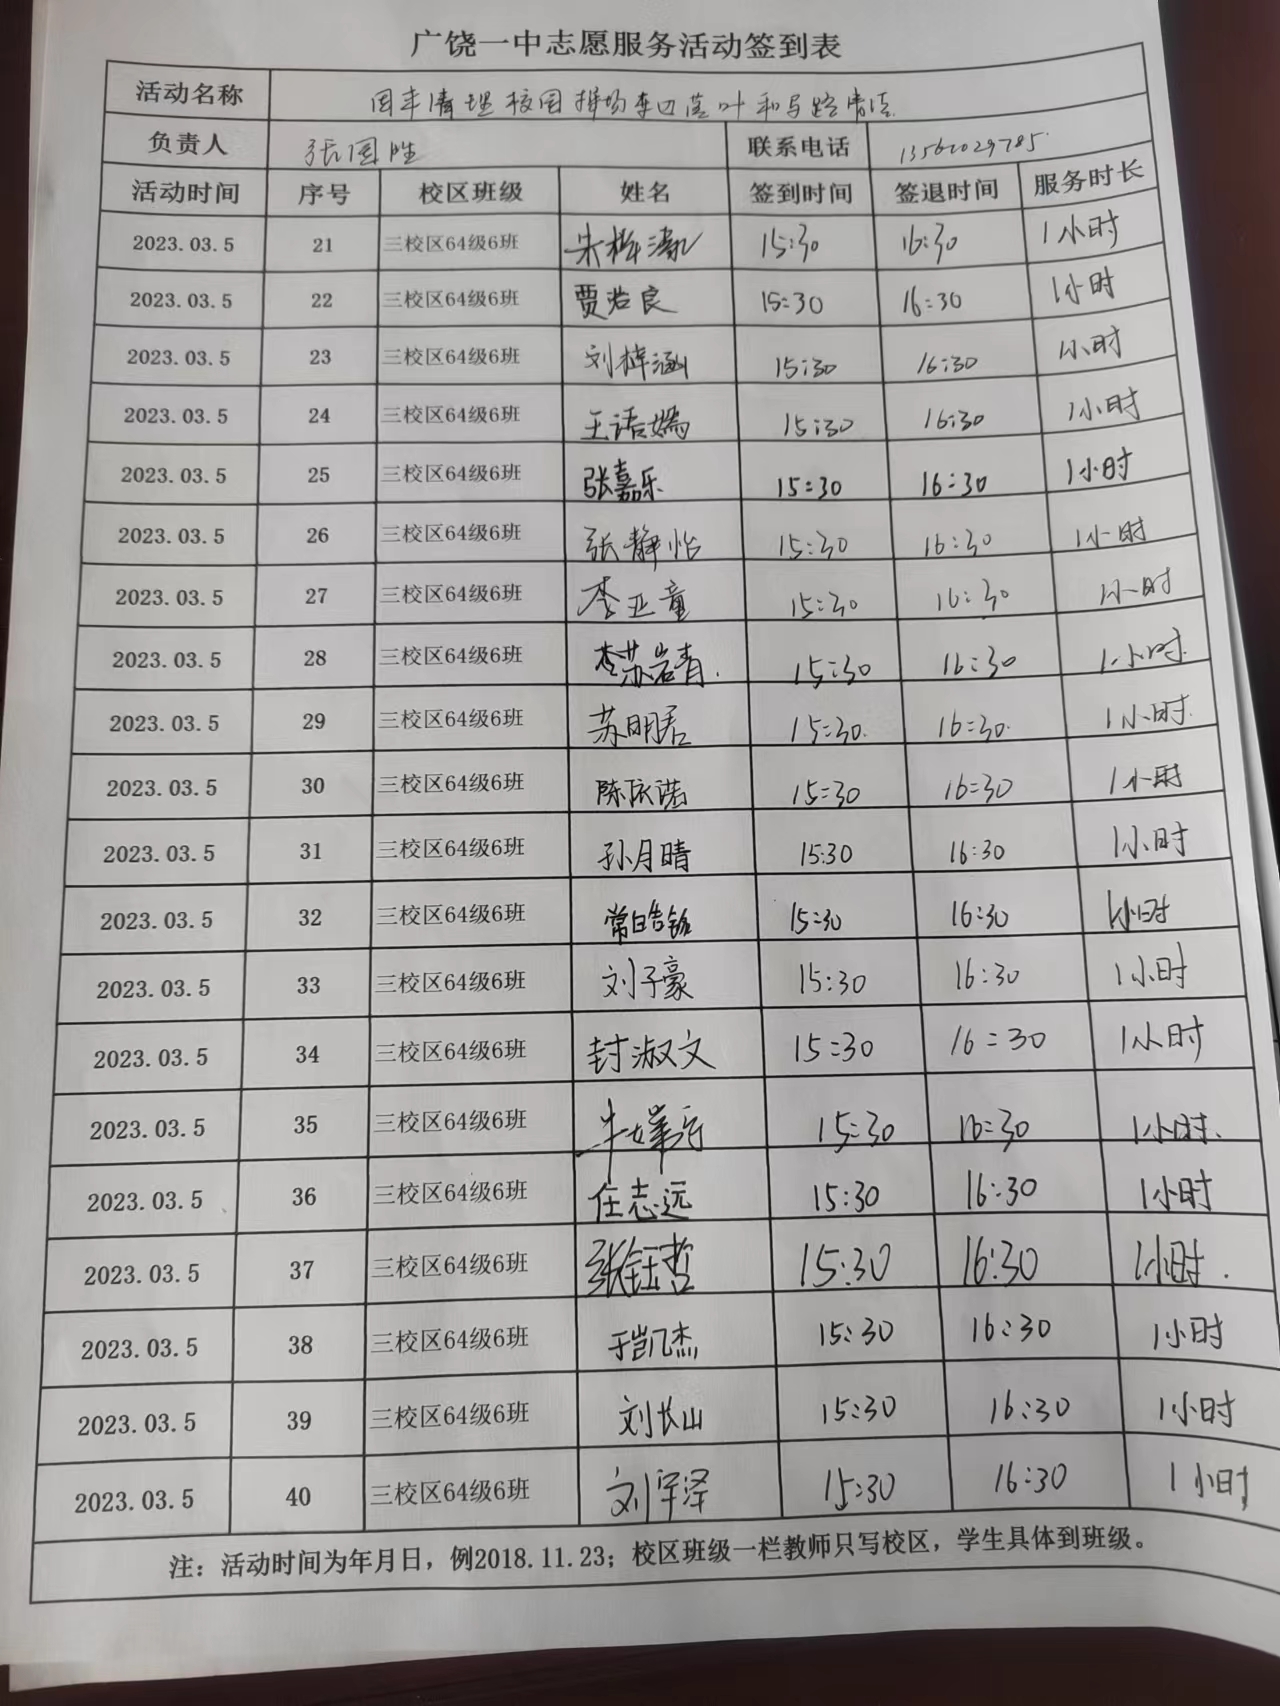 广饶一中志愿服务活动签到表
活动名称 清理校园 落叶和马路清洁
负责人 张国胜 联系电话 13561029785
活动时间 序号 校区班级 姓名 签到时间 签退时间 服务时长
2023.03.5 21 三校区64级6班 朱梓 15:30 16:30 1小时
2023.03.5 22 三校区64级6班 贾浩良 15:30 16:30 1小时
2023.03.5 23 三校区64级6班 刘梓涵 15:30 16:30 1小时
2023.03.5 24 三校区64级6班 王语嫣 15:30 16:30 1小时
2023.03.5 25 三校区64级6班 张嘉乐 15:30 16:30 1小时
2023.03.5 26 三校区64级6班 张静怡 15:30 16:30 1小时
2023.03.5 27 三校区64级6班 李亚童 15:30 16:30 1小时
2023.03.5 28 三校区64级6班 李苏岩青. 15:30 16:30 1小时.
2023.03.5 29 三校区64级6班 苏明君 15:30. 16:30. 1小时.
2023.03.5 30 三校区64级6班 陈依诺 15:30 16:30 1小时
2023.03.5 31 三校区64级6班 孙月晴 15:30 16:30 1小时
2023.03.5 32 三校区64级6班 常皓铭 15:30 16:30 1小时
2023.03.5 33 三校区64级6班 刘子豪 15:30 16:30 1小时
2023.03.5 34 三校区64级6班 封淑文 15:30 16:30 1小时
2023.03.5 35 三校区64级6班 15:30 16:30 1小时.
2023.03.5 36 三校区64级6班 任志远 15:30 16:30 1小时
2023.03.5 37 三校区64级6班 张钰哲 15:30 16:30 1小时.
2023.03.5 38 三校区64级6班 于凯杰 15:30 16:30 1小时
2023.03.5 39 三校区64级6班 刘长山 15:30 16:30 1小时
2023.03.5 40 三校区64级6班 刘宇泽 15:30 16:30 1小时
注：活动时间为年月日，例2018.11.23；校区班级一栏教师只写校区，学生具体到班级。